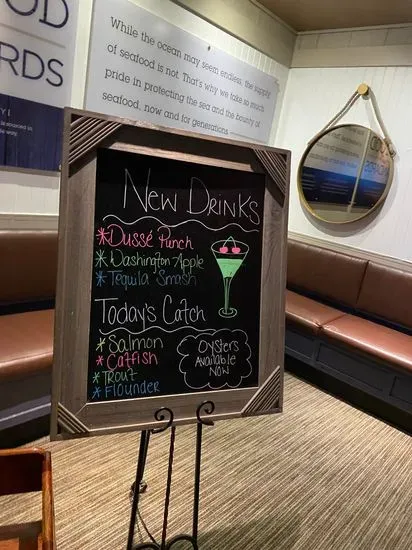 OOD
RDS
While the ocean may seem endless, the supply
of seafood is not. That's why we take so much
pride in protecting the sea and the bounty of
seafood, now and for generations
New Drinks
*Dussé Punch
*Washington Apple
*Tequila Smash
Today's Catch
*Salmon
*Catfish
*Trout
*Flounder
Oysters
Available
Now